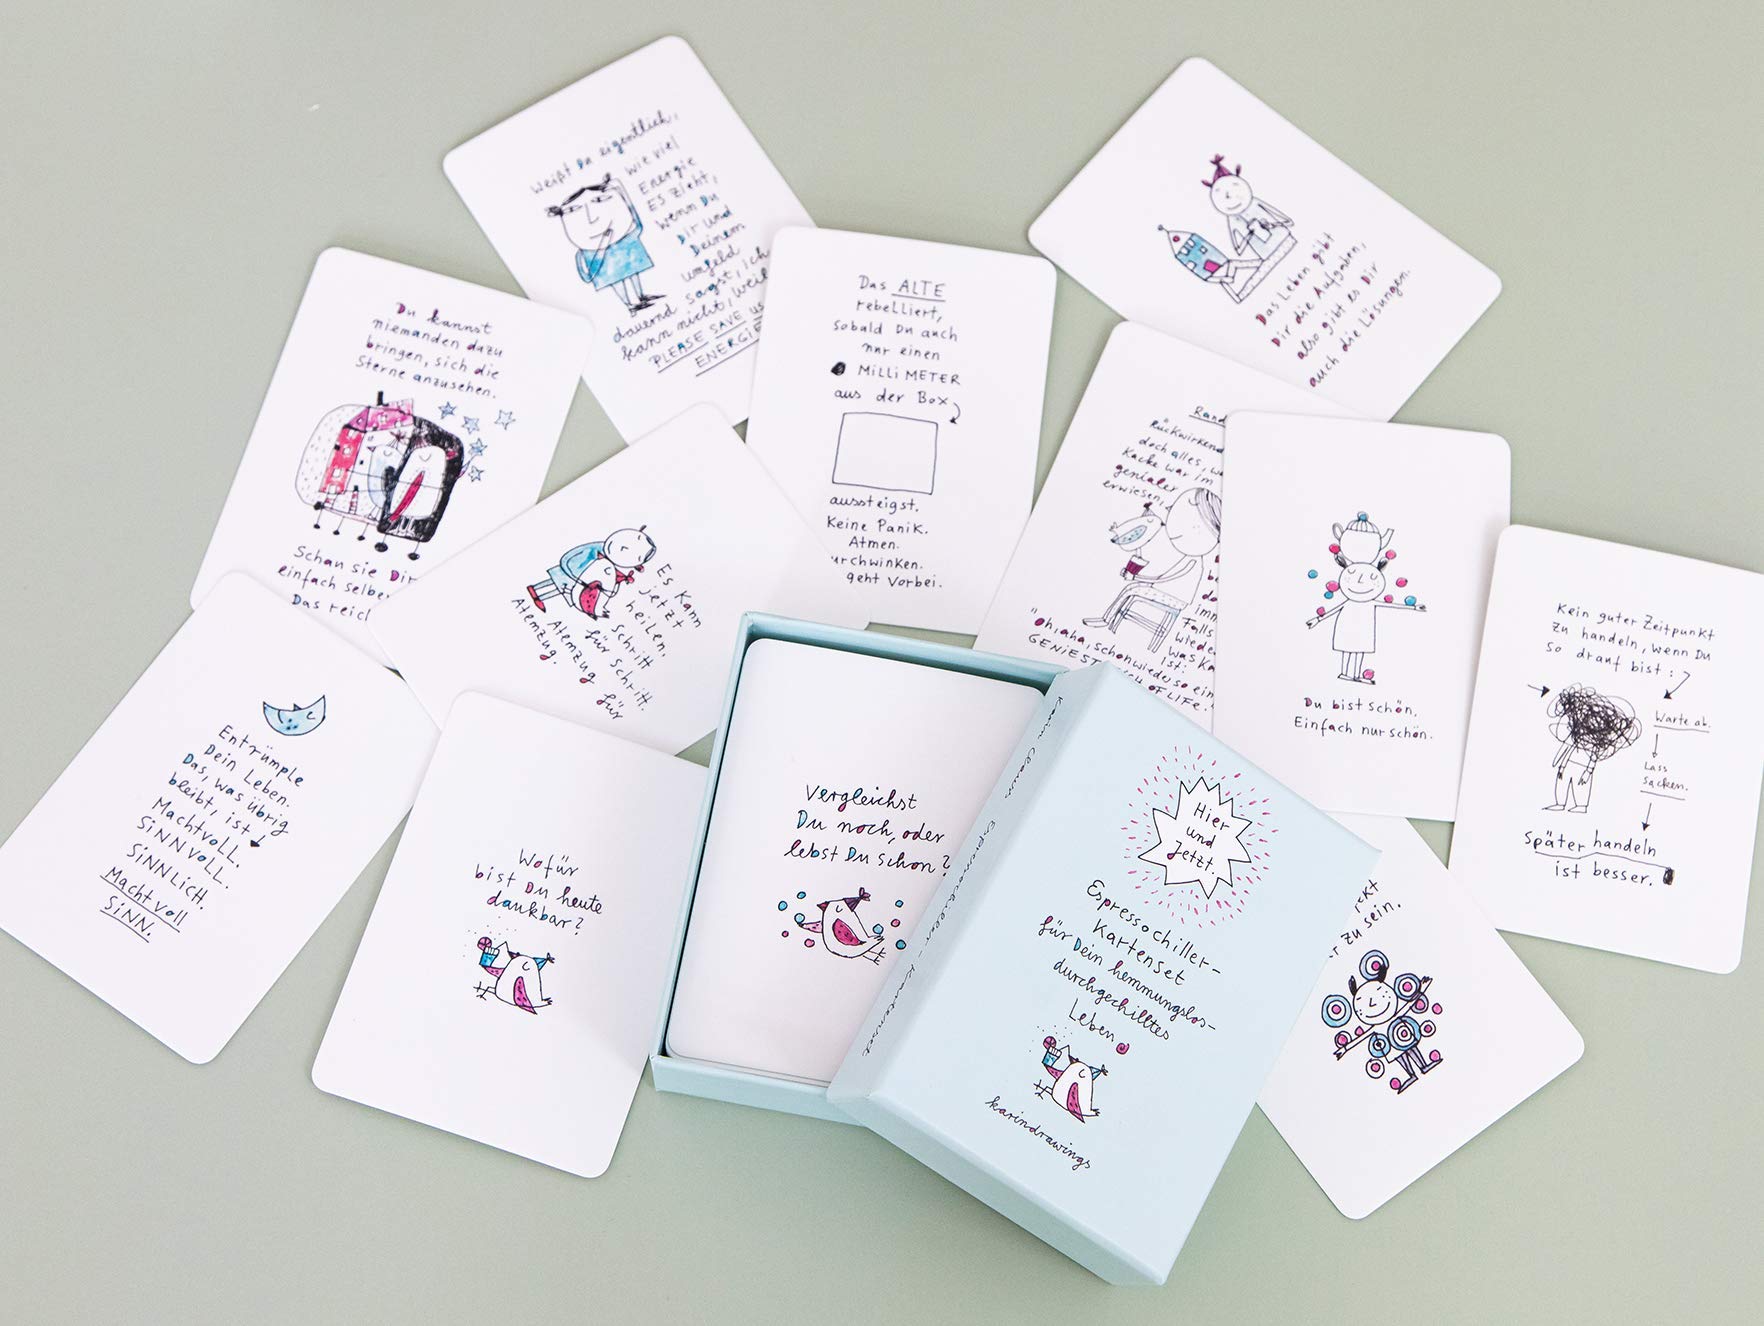 Weißt Du eigentlich,
wie viel
Energie
ES Zieht,
wenn Du
Dir und
Deinem
umfeld
dauernd sagst, ich
kann nicht, weil
PLEASE SAVE
ENERGIE
Das Leben gibt
Dir die Aufgaben,
also gibt es Dir
auch die Lösungen.
Du kannst
niemanden dazu
bringen, sich die
Sterne anzusehen.
Schau sie Dir
einfach selbe
Das reich
Das ALTE
rebelliert,
sobald Du auch
nur einen
MilliMETER
aus der Box
aussteigst.
Keine Panik.
Atmen.
urchwinken.
geht Vorbei.
Rand
Rückwirkend
doch alles, wa
Kacke war im
genialer
erwiesen,
imm
Falls
wiede
was Ka
ist:
"oh, aha, schon wieder so ein
GENIEST
OF LIFE."
Du bist schön.
Einfach nur schön.
Kein guter Zeitpunkt
zu handeln, wenn Du
so drauf bist:
Warte ab.
Lass
sacken.
Später handeln
ist besser.
Es kann
jetzt
heilen,
Schritt
für Schritt.
Atemzug für
Atemzug.
Entrümple
Dein Leben.
Das, was übrig
bleibt, ist
MachtvoLL.
SiNNvoLL.
SiNNLicH.
Machtvoll
SiNN.
Wofür
bist Du heute
dankbar?
Vergleichst
Du noch, oder
lebst Du schon?
Karin Espressochiller-Kartenset
Hier
und
Jetzt.
Espressochiller-
Kartenset
für Dein hemmungslos-
durchgechilltes
Leben
karindrawings
zu sein.